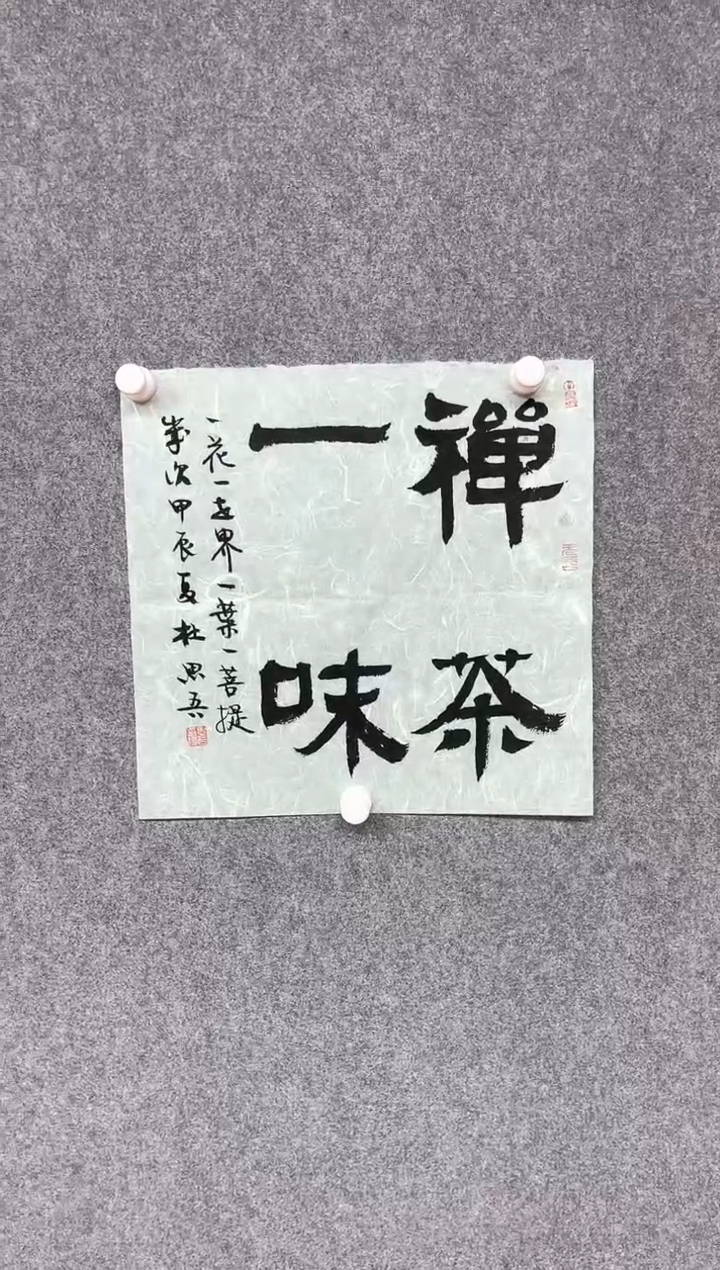 禪茶
一味
一花一世界一葉一菩提
歲次甲辰夏杜思吾